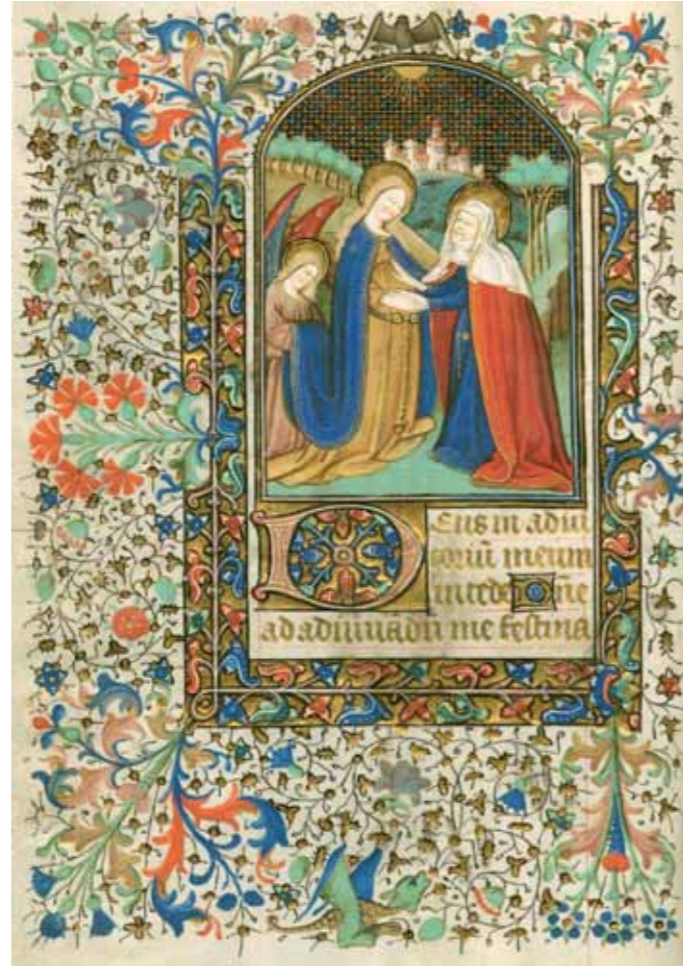 Deus in adiu
toriū meum
intende Dñe
ad adiuuadū me festina